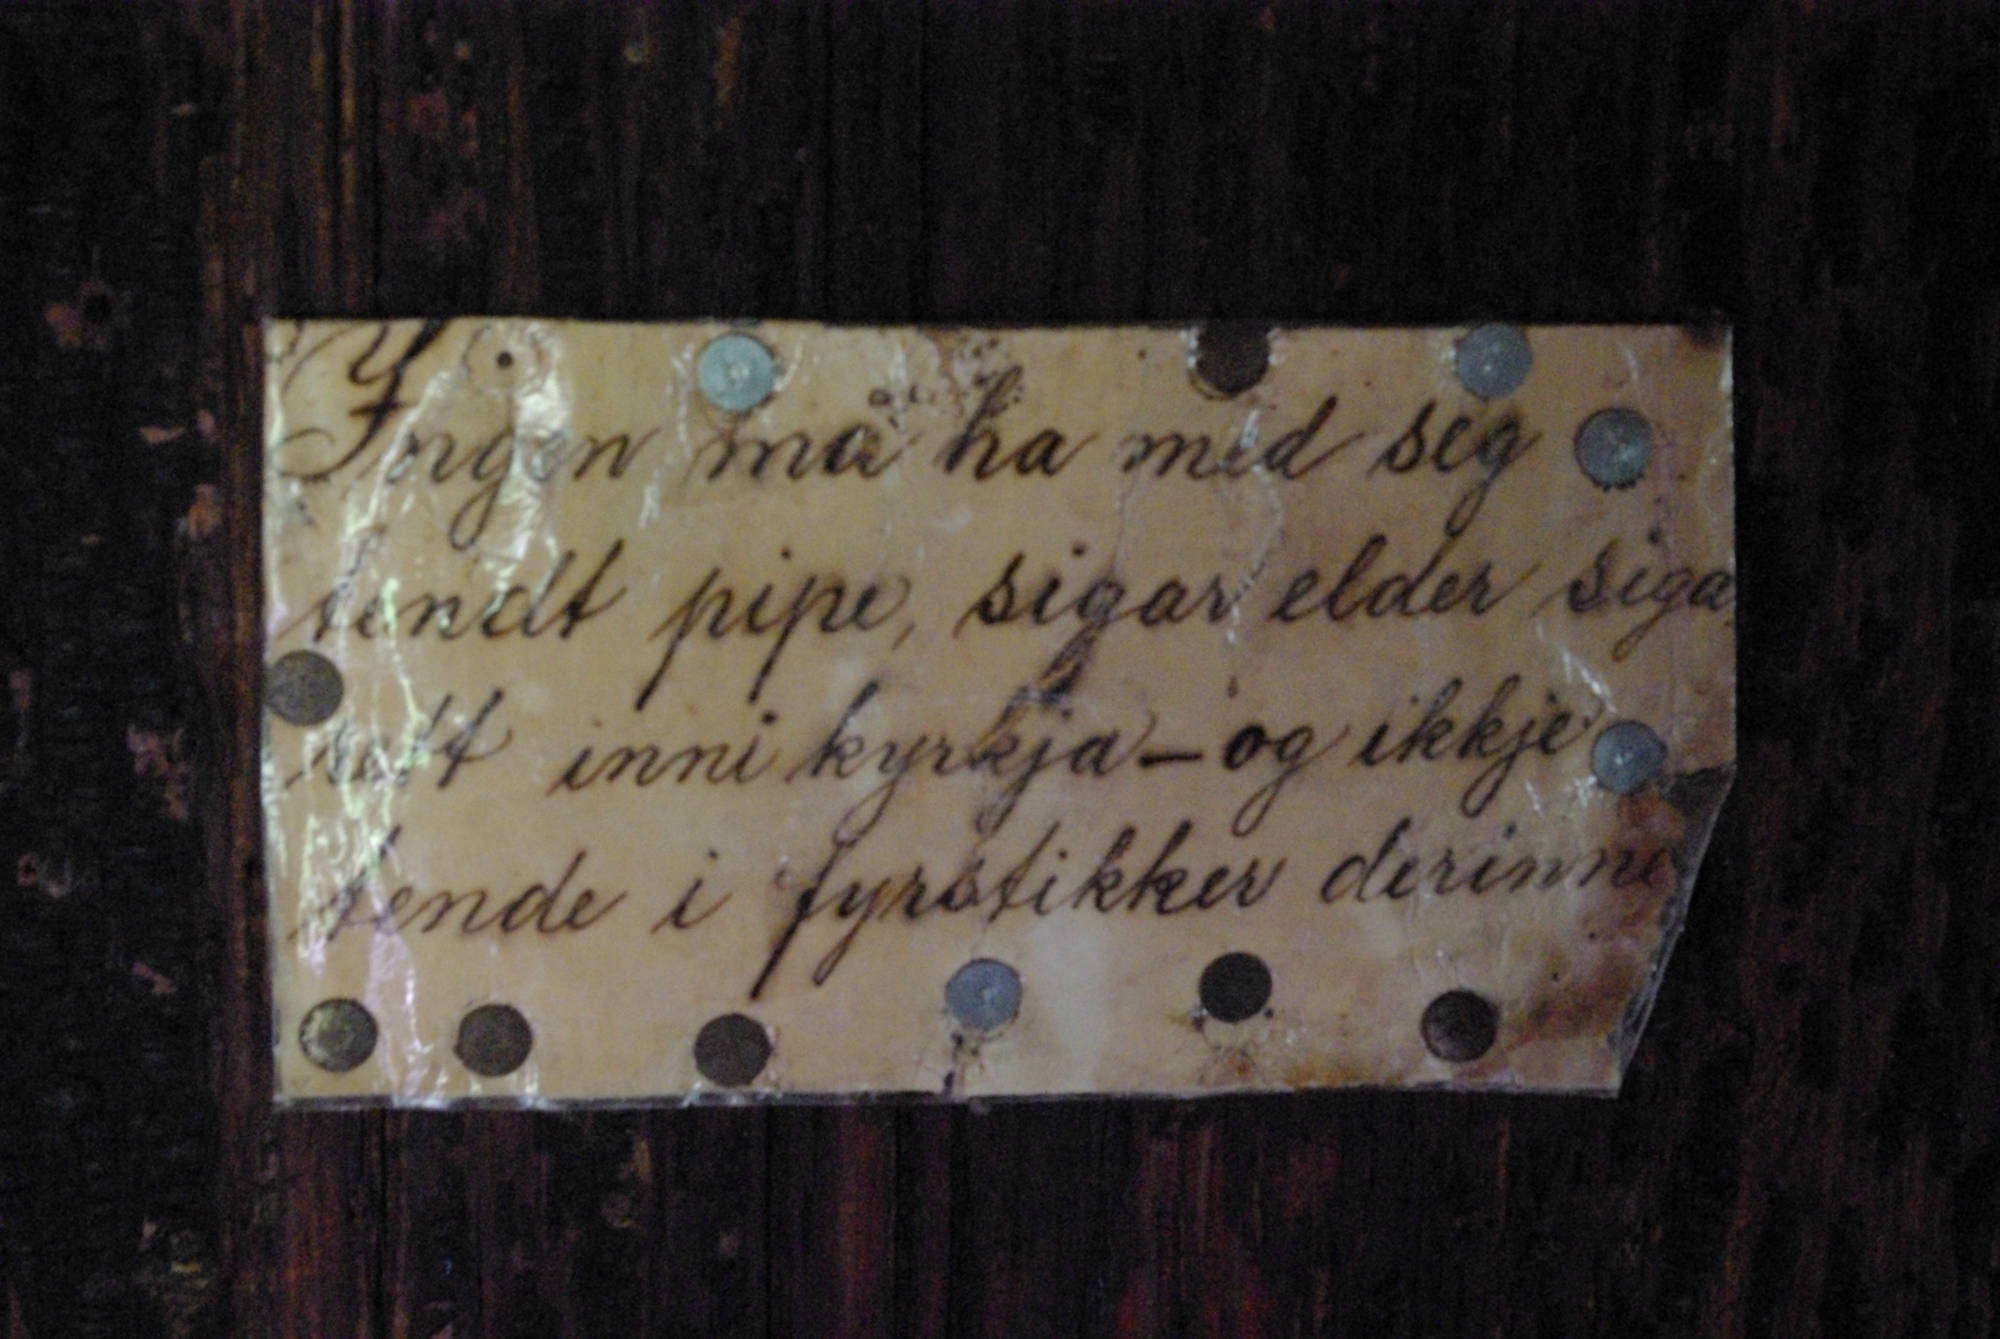 Ingen må ha med seg
tendt pipe, sigar elder siga
rett inni kyrkja – og ikkje
tende i fyrstikker derinne